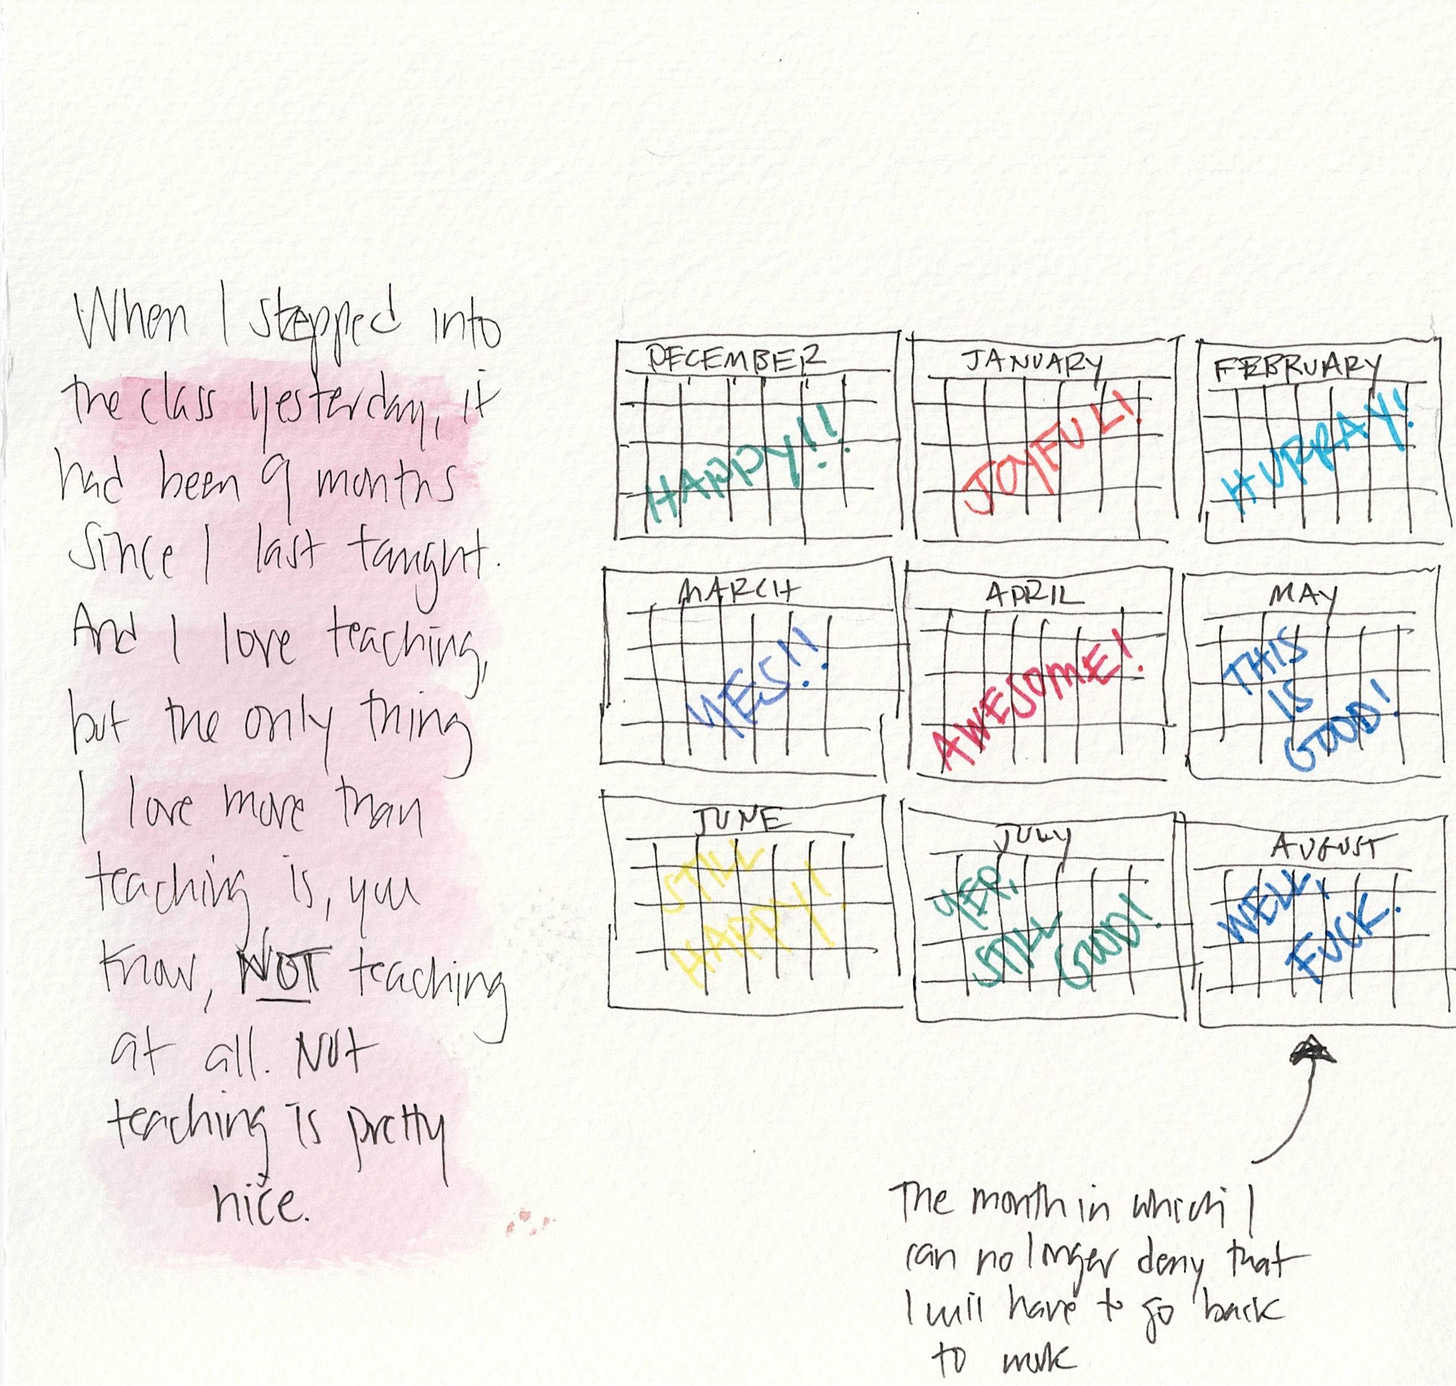 When I stepped into
the class yesterday, it
had been 9 months
since I last taught.
And I love teaching,
but the only thing
I love more than
teaching is, you
know, NOT teaching
at all. Not
teaching is pretty
nice.
DECEMBER
HAPPY!!
JANUARY
JOYFUL!
FEBRUARY
HURRAY!
MARCH
YES!!
APRIL
AWESOME!
MAY
THIS
IS
GOOD!
JUNE
STILL
HAPPY!
JULY
YEP,
STILL
GOOD!
AUGUST
WELL,
FUCK.
The month in which I
can no longer deny that
I will have to go back
to work